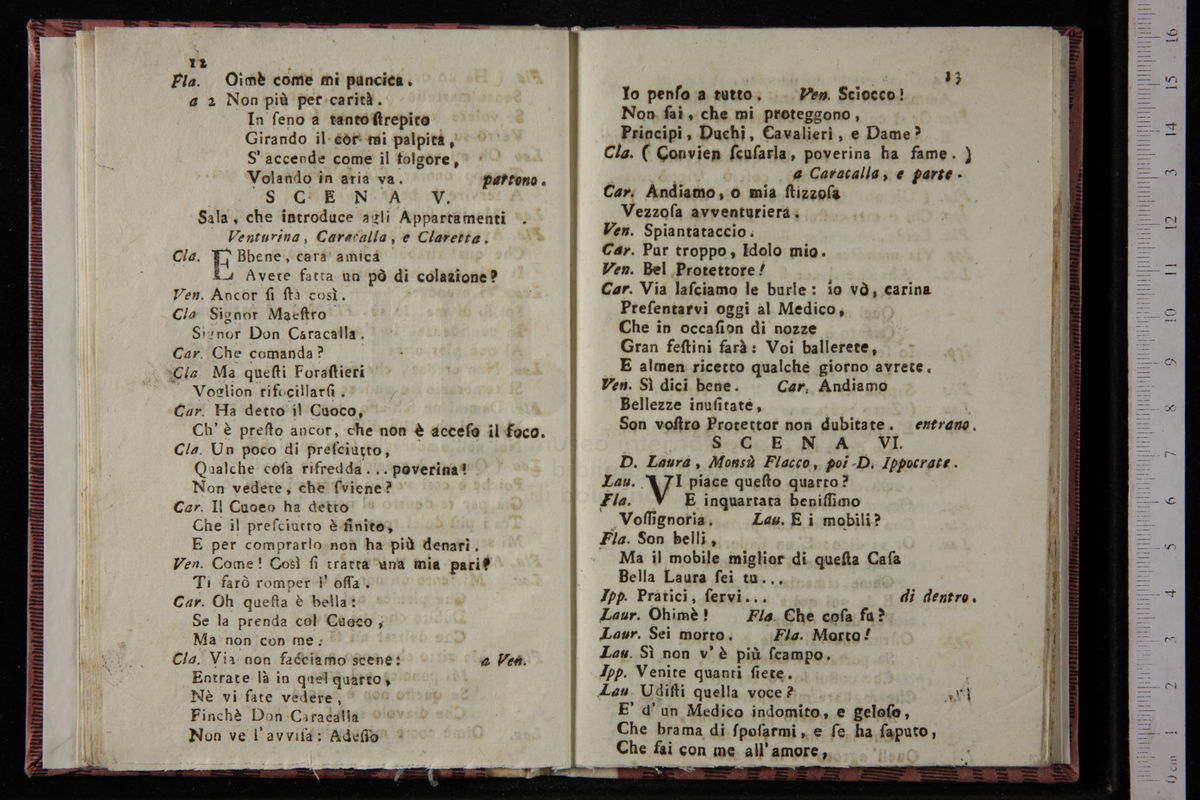 12
Fla. Oimè come mi puncica.
a 2 Non più per carità.
In ſeno a tanto ſtrepito
Girando il cor mi palpita,
S' accende come il folgore,
Volando in aria va. partono.
S C E N A V.
Sala, che introduce agli Appartamenti .
Venturina, Caracalla, e Claretta.
Cla. EBbene, cara amica
Avete fatta un pò di colazione?
Ven. Ancor ſi ſtà così.
Cla Signor Maeſtro
Signor Don Caracalla.
Car. Che comanda?
Cla Ma queſti Foraſtieri
Voglion rifocillarſi.
Car. Ha detto il Cuoco,
Ch' è preſto ancor, che non è acceſo il foco.
Cla. Un poco di preſciutto,
Qualche coſa rifredda... poverina!
Non vedete, che ſviene?
Car. Il Cuoco ha detto
Che il preſciutto è finito,
E per comprarlo non ha più denari.
Ven. Come! Così ſi tratta una mia pari?
Ti farò romper l' oſſa.
Car. Oh queſta è bella:
Se la prenda col Cuoco,
Ma non con me.
Cla. Via non facciamo scene: a Ven.
Entrate là in quel quarto,
Nè vi fate vedere,
Finchè Don Caracalla
Non ve l'avviſa: Adeſſo
13
Io penſo a tutto. Ven. Sciocco!
Non ſai, che mi proteggono,
Principi, Duchi, Cavalieri, e Dame?
Cla. ( Convien ſcuſarla, poverina ha fame. )
a Caracalla, e parte.
Car. Andiamo, o mia ſtizzoſa
Vezzoſa avventuriera.
Ven. Spiantataccio.
Car. Pur troppo, Idolo mio.
Ven. Bel Protettore!
Car. Via laſciamo le burle: io vò, carina
Preſentarvi oggi al Medico,
Che in occaſion di nozze
Gran feſtini farà: Voi ballerete,
E almen ricetto qualche giorno avrete.
Ven. Sì dici bene. Car. Andiamo
Bellezze inuſitate,
Son voſtro Protettor non dubitate. entrano.
S C E N A VI.
D. Laura, Monsù Flacco, poi D. Ippocrate.
Lau. VI piace queſto quarto?
Fla. E inquartata beniſſimo
Voſſignoria. Lau. E i mobili?
Fla. Son belli,
Ma il mobile miglior di queſta Caſa
Bella Laura ſei tu...
Ipp. Pratici, ſervi... di dentro.
Laur. Ohimè! Fla. Che coſa fu?
Laur. Sei morto. Fla. Morto!
Lau. Sì non v' è più ſcampo.
Ipp. Venite quanti ſiete.
Lau. Udiſti quella voce?
E' d' un Medico indomito, e geloſo,
Che brama di ſpoſarmi, e ſe ha ſaputo,
Che fai con me all'amore,